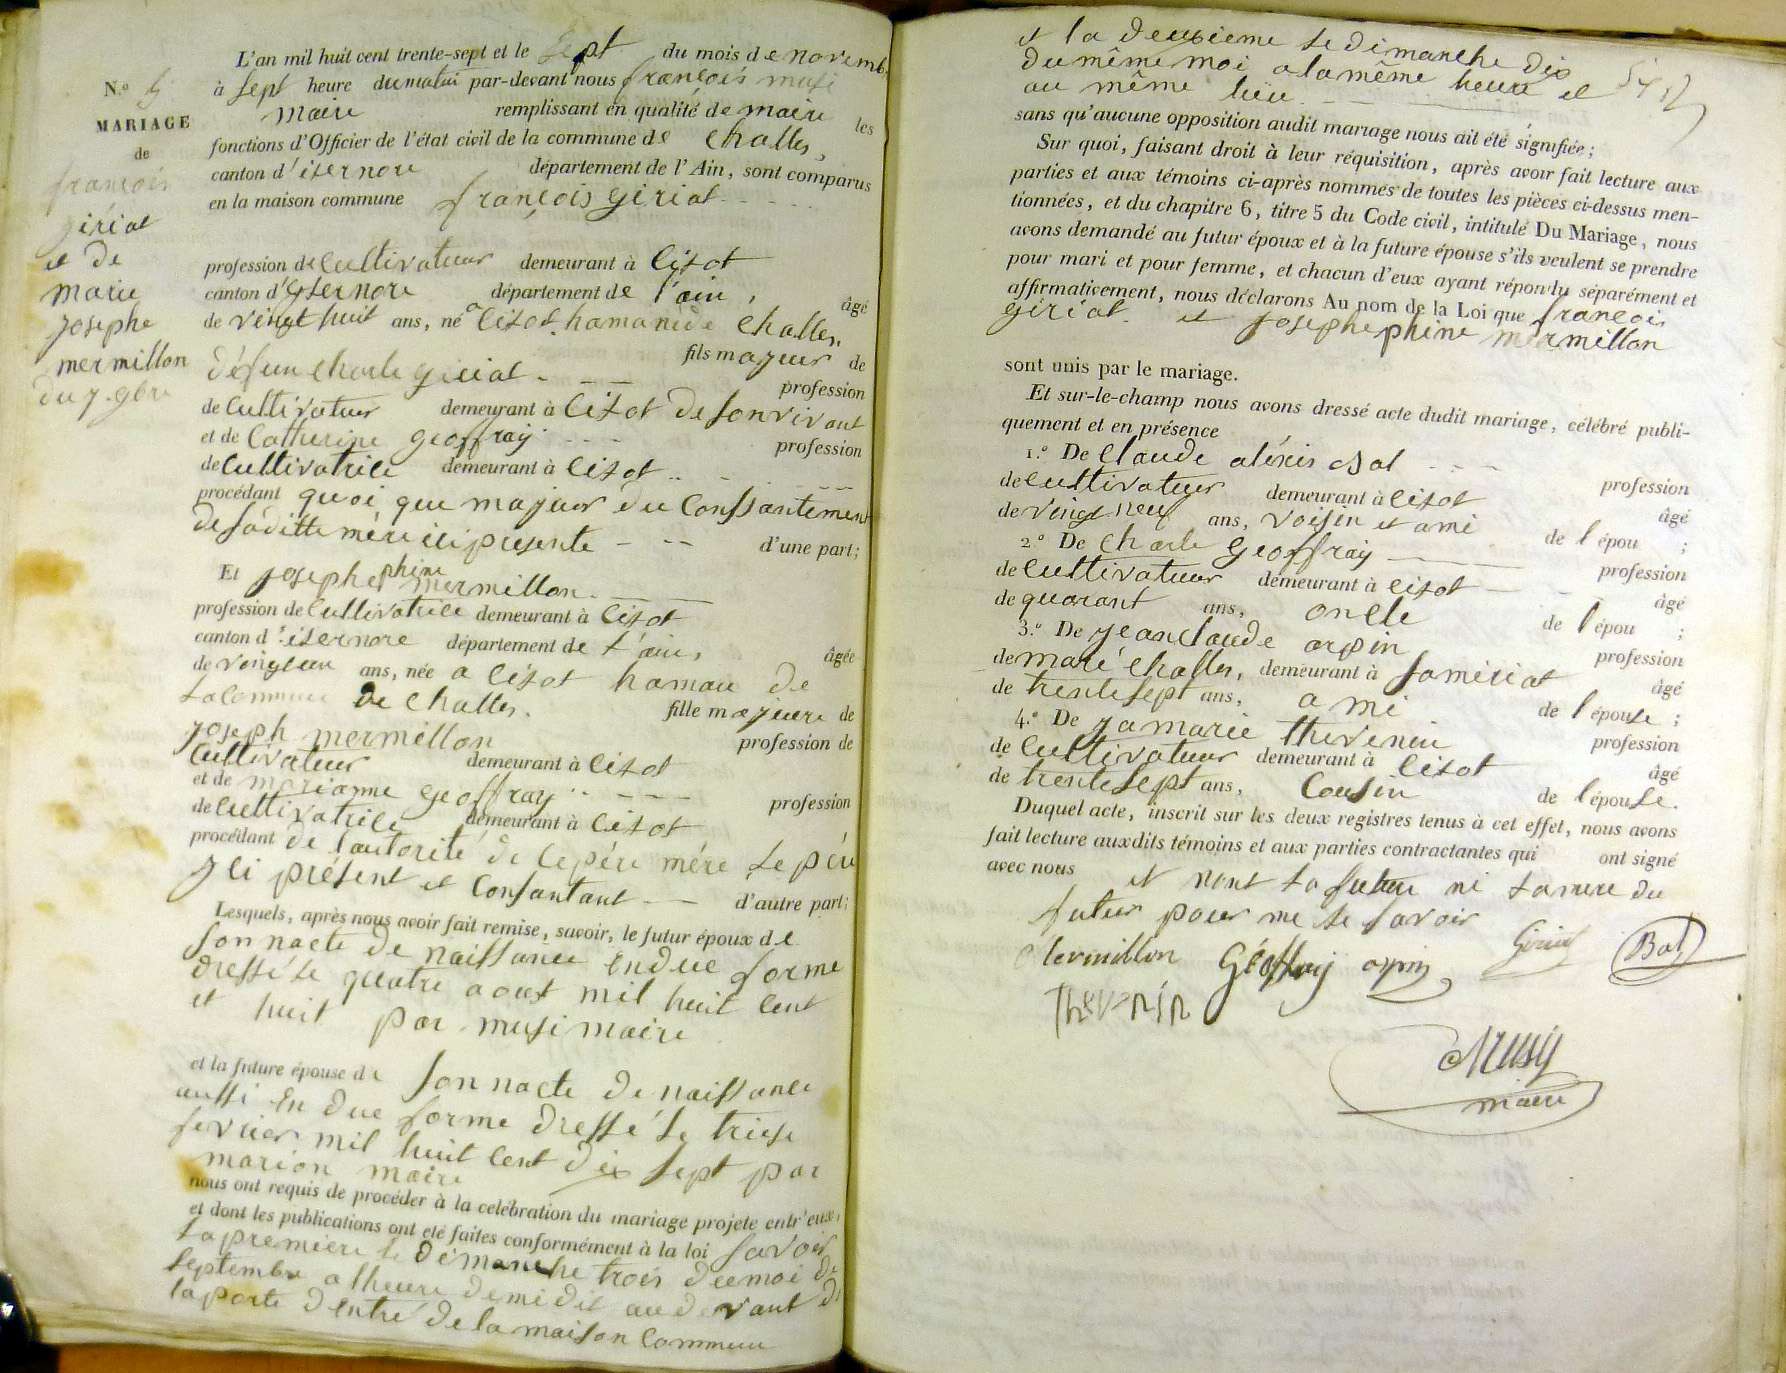 N.o 5
MARIAGE
de
françois
giriat
et de
marie
josephe
mermillon
du 7. 9bre
L'an mil huit cent trente-sept et le sept du mois de novemb
à sept heure du matin par-devant nous françois musi
maire remplissant en qualité de maire les
fonctions d'Officier de l'état civil de la commune de challes,
canton d'isernore département de l'Ain, sont comparus
en la maison commune françois giriat
profession de cultivateur demeurant à cisot
canton d'ysernore département de l'ain, âgé
de vingt huit ans, né a cisot hamau de challes,
fils majeur de
défun charle giriat profession
de cultivateur demeurant à cisot de son vivant
et de catherine geoffray profession
de cultivatrice demeurant à cisot
procédant quoi que majeur du consantement
de sa ditte mère ici presente d'une part;
Et josephephine mermillon
profession de cultivatrice demeurant à cisot
canton d'isernore département de l'ain, âgée
de vingt un ans, née a cisot hamau de
la commune de challes. fille majeure de
joseph mermillon profession de
cultivateur demeurant à cisot
et de marianne geoffray profession
de cultivatrice demeurant à cisot
procédant de l'autorité de ce père mére le père
y ci présent et consantant d'autre part;
Lesquels, après nous avoir fait remise, savoir, le futur époux de
son nacte de naissance en due forme
dressé le quatre aout mil huit cent
et huit par musi maire
et la future épouse de son nacte de naissance
aussi en due forme dressé le treise
fevrier mil huit cent dix sept par
marion maire
nous ont requis de procéder à la célébration du mariage projeté entr'eux,
et dont les publications ont été faites conformément à la loi savoir
la premiere le dimanche trois du moi de
septembre a lheure de midit au devant de
la porte dentré de la maison commune
et la deuxieme le dimanche dix
du même moi a la même heure et
au même lieu
sans qu'aucune opposition audit mariage nous ait été signifiée;
Sur quoi, faisant droit à leur réquisition, après avoir fait lecture aux
parties et aux témoins ci-après nommés de toutes les pièces ci-dessus men-
tionnées, et du chapitre 6, titre 5 du Code civil, intitulé Du Mariage, nous
avons demandé au futur époux et à la future épouse s'ils veulent se prendre
pour mari et pour femme, et chacun d'eux ayant répondu séparément et
affirmativement, nous déclarons Au nom de la Loi que françois
giriat et josephephine mermillon
sont unis par le mariage.
Et sur-le-champ nous avons dressé acte dudit mariage, célébré publi-
quement et en présence
1.o De claude aléxis Bal profession
de cultivateur demeurant à cisot âgé
de vingt neuf ans, voisin et ami de l'épou ;
2.o De charle geoffray profession
de cultivateur demeurant à cisot âgé
de quarant ans, oncle de l'épou ;
3.o De jean claude arpin profession
de maré challes, demeurant à samériat âgé
de trente sept ans, ami de l'épouse ;
4.o De ja marie thevenin profession
de cultivateur demeurant à cisot âgé
de trente sept ans, cousin de l'épouse.
Duquel acte, inscrit sur les deux registres tenus à cet effet, nous avons
fait lecture auxdits témoins et aux parties contractantes qui ont signé
avec nous et nont la future ni la mere du
futur pour ne le savoir
Mermillon Géoffray arpin Giriat Bal
Thevenin
Musy
maire